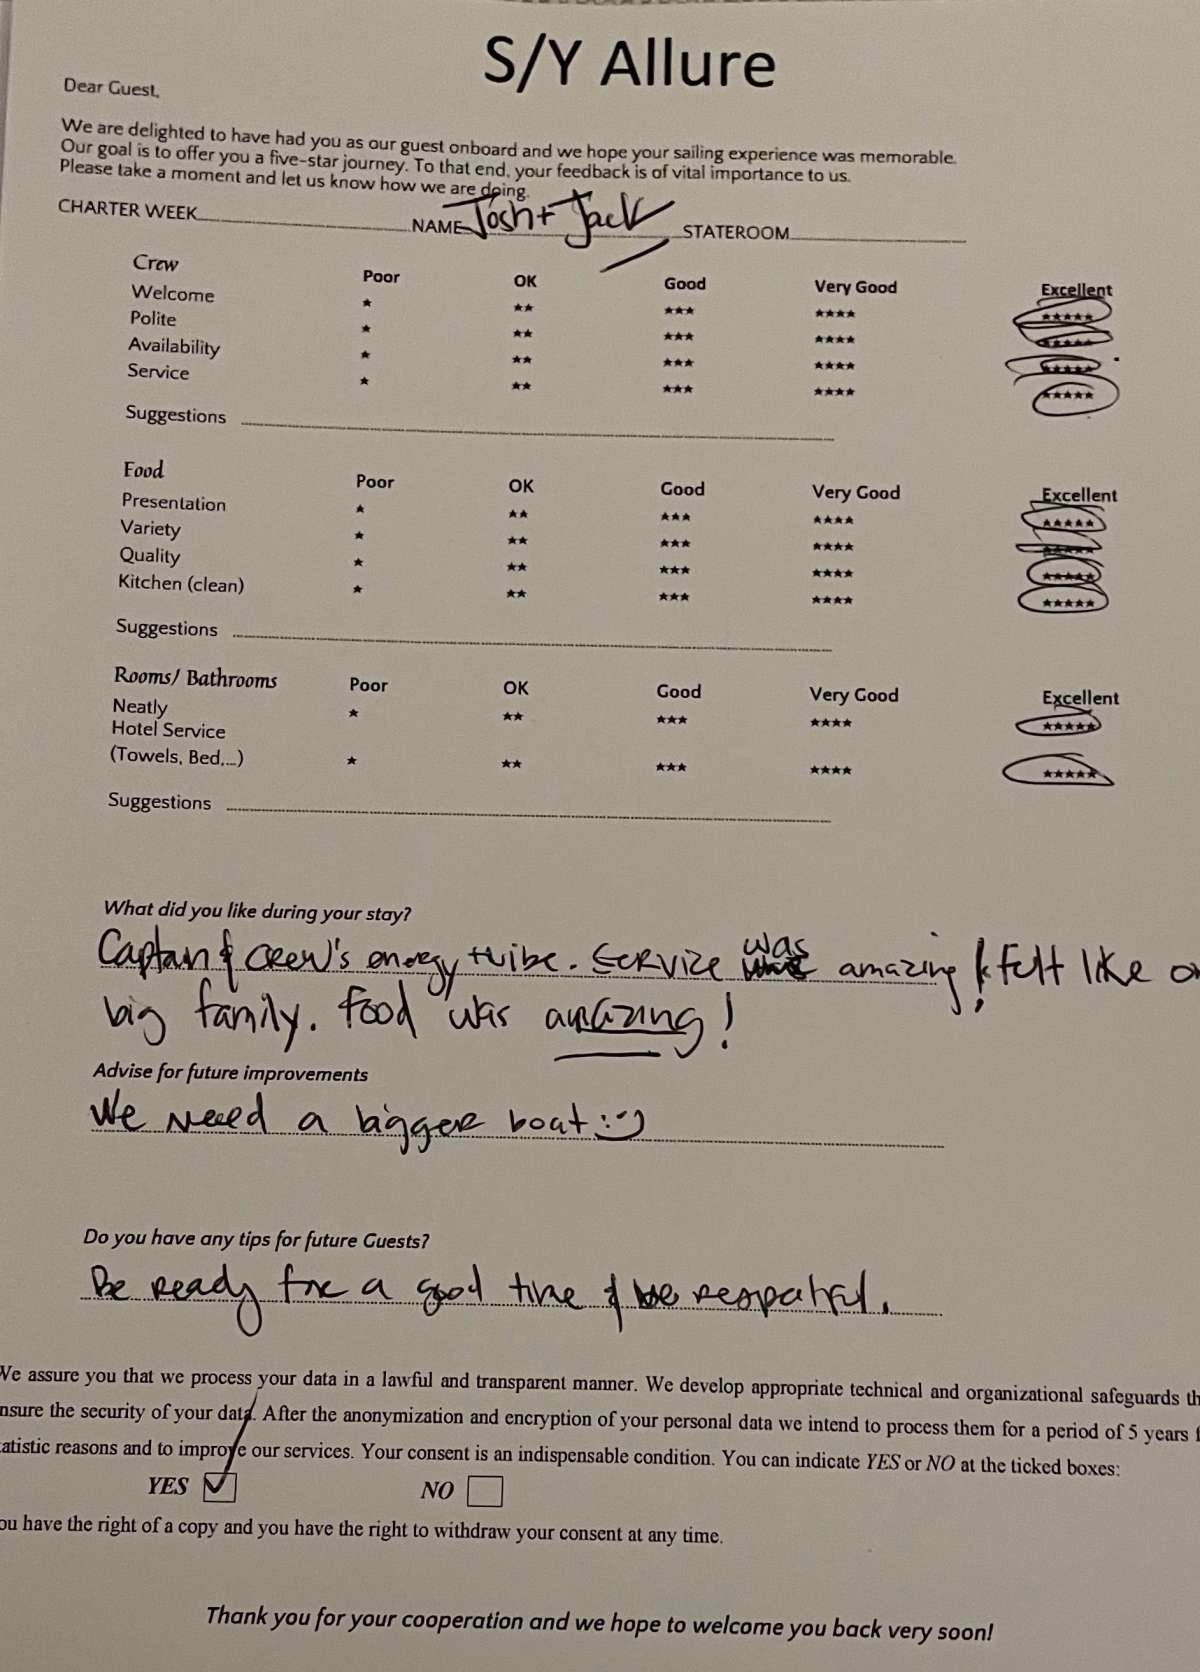 S/Y Allure
Dear Guest,
We are delighted to have had you as our guest onboard and we hope your sailing experience was memorable.
Our goal is to offer you a five-star journey. To that end, your feedback is of vital importance to us.
Please take a moment and let us know how we are doing.
CHARTER WEEK NAME Josh + Jack STATEROOM
Crew Poor OK Good Very Good Excellent
Welcome ★ ★★ ★★★ ★★★★ ★★★★★
Polite ★ ★★ ★★★ ★★★★ ★★★★★
Availability ★ ★★ ★★★ ★★★★ ★★★★★
Service ★ ★★ ★★★ ★★★★ ★★★★★
Suggestions
Food Poor OK Good Very Good Excellent
Presentation ★ ★★ ★★★ ★★★★ ★★★★★
Variety ★ ★★ ★★★ ★★★★ ★★★★★
Quality ★ ★★ ★★★ ★★★★ ★★★★★
Kitchen (clean) ★ ★★ ★★★ ★★★★ ★★★★★
Suggestions
Rooms/ Bathrooms Poor OK Good Very Good Excellent
Neatly ★ ★★ ★★★ ★★★★ ★★★★★
Hotel Service
(Towels, Bed,...) ★ ★★ ★★★ ★★★★ ★★★★★
Suggestions
What did you like during your stay?
Captain & Crew's energy + vibe. Service was amazing & felt like
big family. Food was amazing!
Advise for future improvements
We need a bigger boat :-)
Do you have any tips for future Guests?
Be ready for a good time & be respectful.
We assure you that we process your data in a lawful and transparent manner. We develop appropriate technical and organizational safeguards
the security of your data. After the anonymization and encryption of your personal data we intend to process them for a period of 5 years
reasons and to improve our services. Your consent is an indispensable condition. You can indicate YES or NO at the ticked boxes:
YES ☑ NO ☐
have the right of a copy and you have the right to withdraw your consent at any time.
Thank you for your cooperation and we hope to welcome you back very soon!